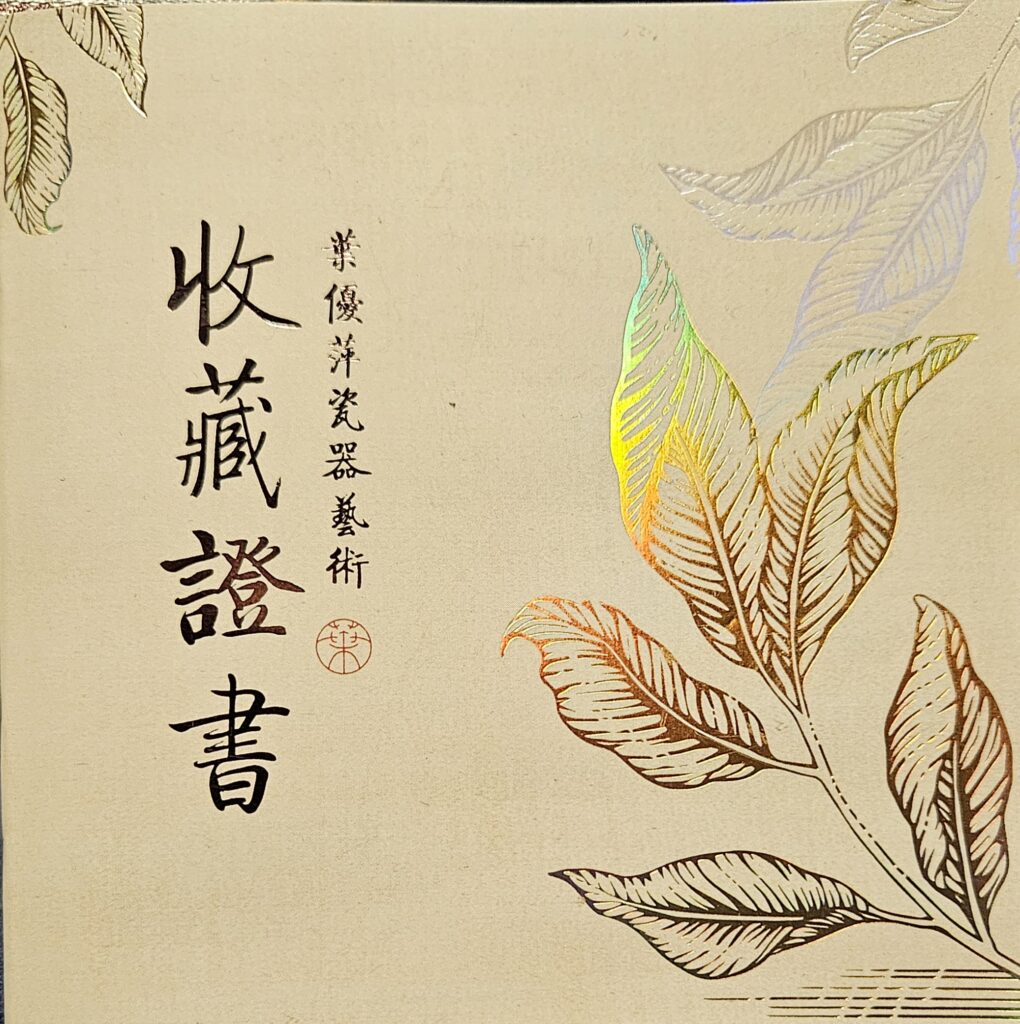 葉優萍瓷器藝術
葉
收藏證書